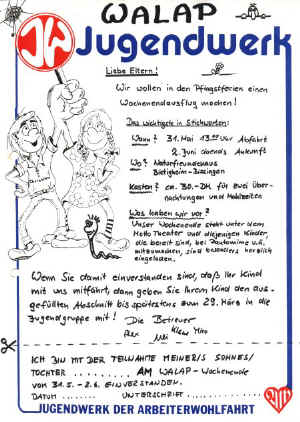 WALAP
JW Jugendwerk
Liebe Eltern!
Wir wollen in den Pfingstferien einen
Wochenendausflug machen!
Das wichtigste in Stichworten:
Wann? 31. Mai 13.00 Uhr Abfahrt
2. Juni abends Ankunft
Wo? Naturfreundehaus
Bietigheim-Bissingen
Kosten? ca. 30.-DM für zwei Über-
nachtungen und Mahlzeiten
Was haben wir vor?
Unser Wochenende steht unter dem
Motto Theater und diejenigen Kinder,
die bereit sind, bei Pantomime u.ä.
mitzumachen, sind besonders herzlich
eingeladen.
Wenn Sie damit einverstanden sind, daß Ihr Kind
mit uns mitfährt, dann geben Sie Ihrem Kind den aus-
gefüllten Abschnitt bis spätestens zum 29. März in die
Jugendgruppe mit!
Die Betreuer
ICH BIN MIT DER TEILNAHME MEINER/S SOHNES/
TOCHTER .......... AM WALAP-Wochenende
VOM 31.5. - 2.6. EINVERSTANDEN.
DATUM ........ UNTERSCHRIFT ..........
JUGENDWERK DER ARBEITERWOHLFAHRT